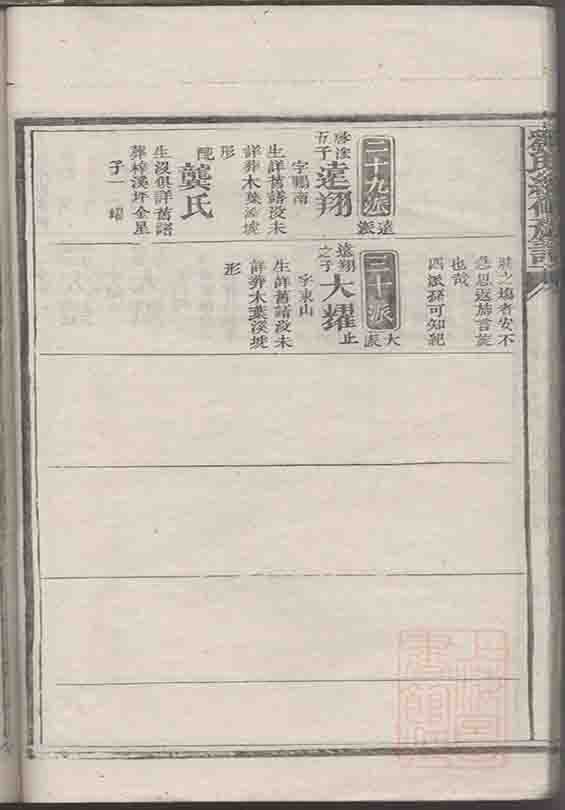 二十九派
遠派
啓淦五子
遠翔
字鵬南
生詳舊譜没未
詳葬木葉溪坡
形
配
龔氏
生没俱詳舊譜
葬梓溪坪金星
子一 耀
之塲者安不
急思返旆言旋
也哉
四派孫可知紀
三十派
大派
遠翔之子
大耀
止
字東山
生詳舊譜没未
詳葬木葉溪坡
形
氏續修族譜